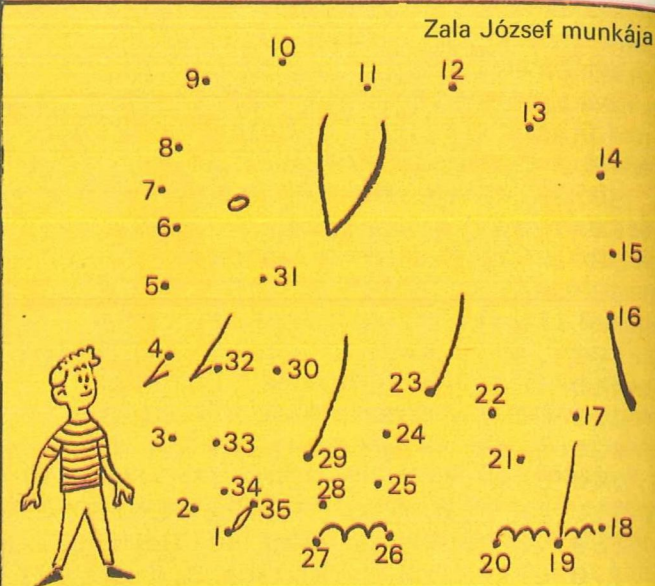 Zala József munkája
10
9
11
12
13
8
14
7
6
15
5
31
16
4
32
30
23
22
17
3
33
24
29
21
34
25
2
35
28
1
18
27
26
20
19